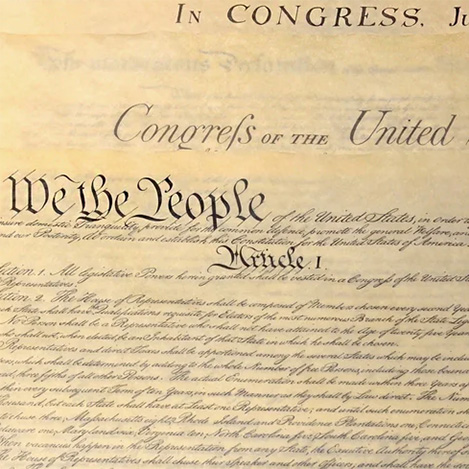 In CONGRESS, Ju
Congreſs OF THE United
We the People of the United States, in order
insure domestic Tranquility, provide for the common defence, promote the general Welfare, and
and our Posterity, do ordain and establish this Constitution for the United States of America
Article. I.
Section. 1. All legislative Powers herein granted shall be vested in a Congress of the United St
Representatives.
Section. 2. The House of Representatives shall be composed of Members chosen every second Year
State shall have Qualifications requisite for Electors of the most numerous Branch of the State
No Person shall be a Representative who shall not have attained to the Age of twenty five Years
who shall not, when elected, be an Inhabitant of that State in which he shall be chosen.
Representatives and direct Taxes shall be apportioned among the several States which may be includ
which shall be determined by adding to the whole Number of free Persons, including those boun
three fifths of all other Persons. The actual Enumeration shall be made within three Years
every subsequent Term of ten Years, in such Manner as they shall by Law direct. The Num
but each State shall have at Least one Representative; and until such enumeration
chuse three, Massachusetts eight, Rhode Island and Providence Plantations one, Connecticut
Maryland six, Virginia ten, North Carolina five, South Carolina five, and Geo
When vacancies happen in the Representation from any State, the Executive Authority thereof
House of Representatives shall chuse their Speaker and other Officers; and shall have the